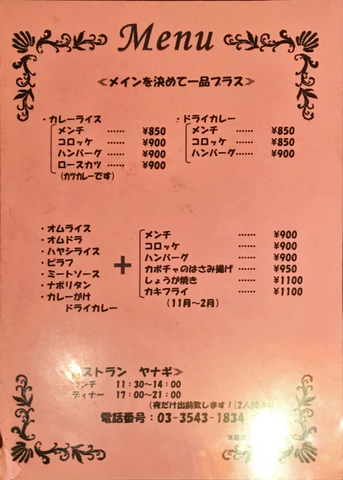 Menu
≪メインを決めて一品プラス≫
・カレーライス
メンチ …… ¥850
コロッケ …… ¥900
ハンバーグ …… ¥900
ロースカツ …… ¥900
(カツカレーです)
・ドライカレー
メンチ …… ¥850
コロッケ …… ¥850
ハンバーグ …… ¥900
・オムライス
・オムドラ
・ハヤシライス
・ピラフ
・ミートソース
・ナポリタン
・カレーがけ
ドライカレー
+
メンチ …… ¥900
コロッケ …… ¥900
ハンバーグ …… ¥900
カボチャのはさみ揚げ …… ¥950
しょうが焼き …… ¥1100
カキフライ …… ¥1100
(11月~2月)
ストラン ヤナギ≫
ンチ 11:30~14:00
ディナー 17:00~21:00
(夜だけ出前致します!(2人
電話番号:03-3543-1834